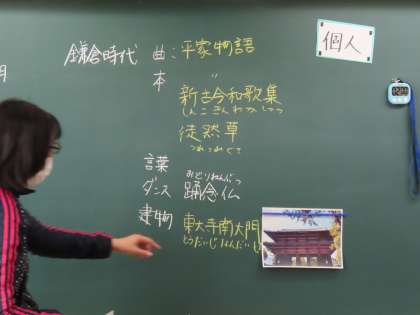 鎌倉時代 曲：平家物語
個人
本 〃
新古今和歌集
しんこきんわかしゅう
徒然草
つれづれぐさ
言葉
おどりねんぶつ
ダンス 踊念仏
建物 東大寺南大門
とうだいじなんだいも
月